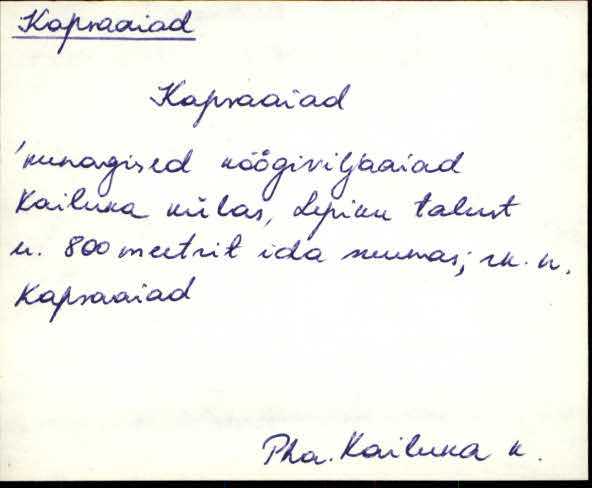 Kapsaaiad
Kapsaaiad
'kunagised köögiviljaaiad
Kailuka külas, Lepiku talust
u. 800 meetrit ida suunas; rk. n.
Kapsaaiad
Pha. Kailuka k.